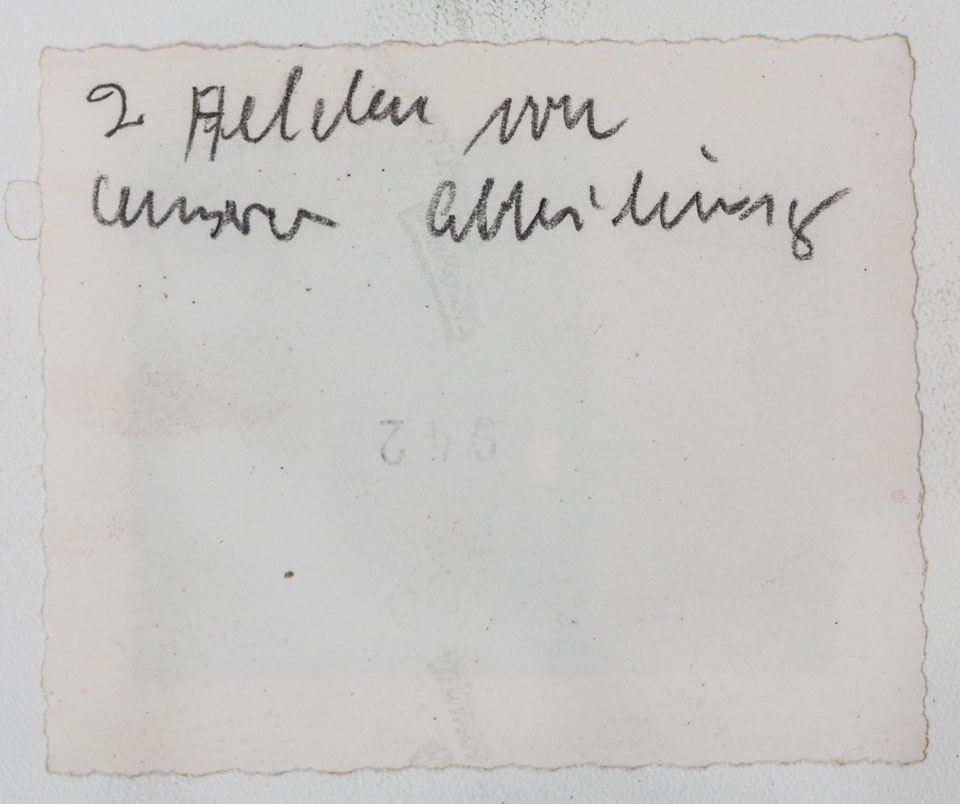 2 Helden von
unserer Abteilung
942